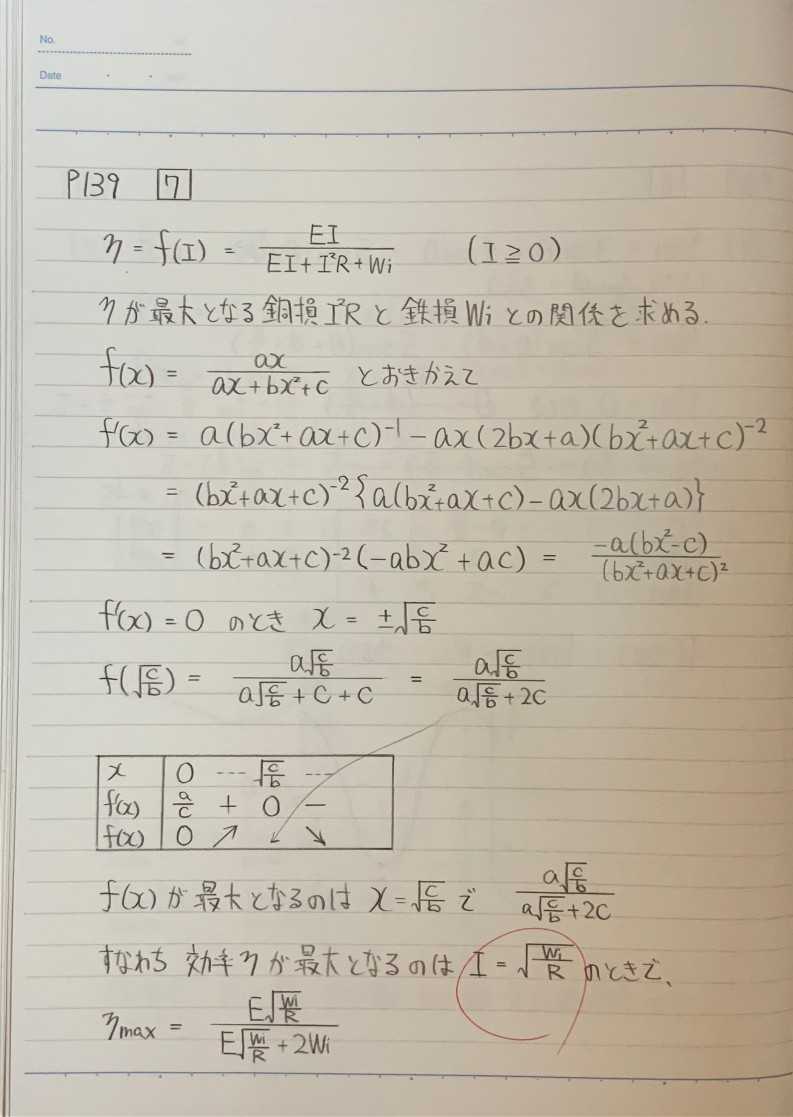 No.
Date
P139 7
η = f(I) = EI / (EI + I²R + Wi) (I ≧ 0)
ηが最大となる銅損I²Rと鉄損Wiとの関係を求める.
f(x) = ax / (ax + bx² + c) とおきかえて
f'(x) = a(bx² + ax + c)⁻¹ − ax(2bx + a)(bx² + ax + c)⁻²
= (bx² + ax + c)⁻²{a(bx² + ax + c) − ax(2bx + a)}
= (bx² + ax + c)⁻²(−abx² + ac) = −a(bx² − c) / (bx² + ax + c)²
f'(x) = 0 のとき x = ±√(c/b)
f(√(c/b)) = a√(c/b) / (a√(c/b) + C + C) = a√(c/b) / (a√(c/b) + 2C)
x 0 --- √(c/b) ---
f'(x) a/c + 0 −
f(x) 0 ↗ ↙ ↘
f(x)が最大となるのは x = √(c/b) で a√(c/b) / (a√(c/b) + 2C)
すなわち 効率ηが最大となるのは I = √(Wi/R) のときで、
ηmax = E√(Wi/R) / (E√(Wi/R) + 2Wi)